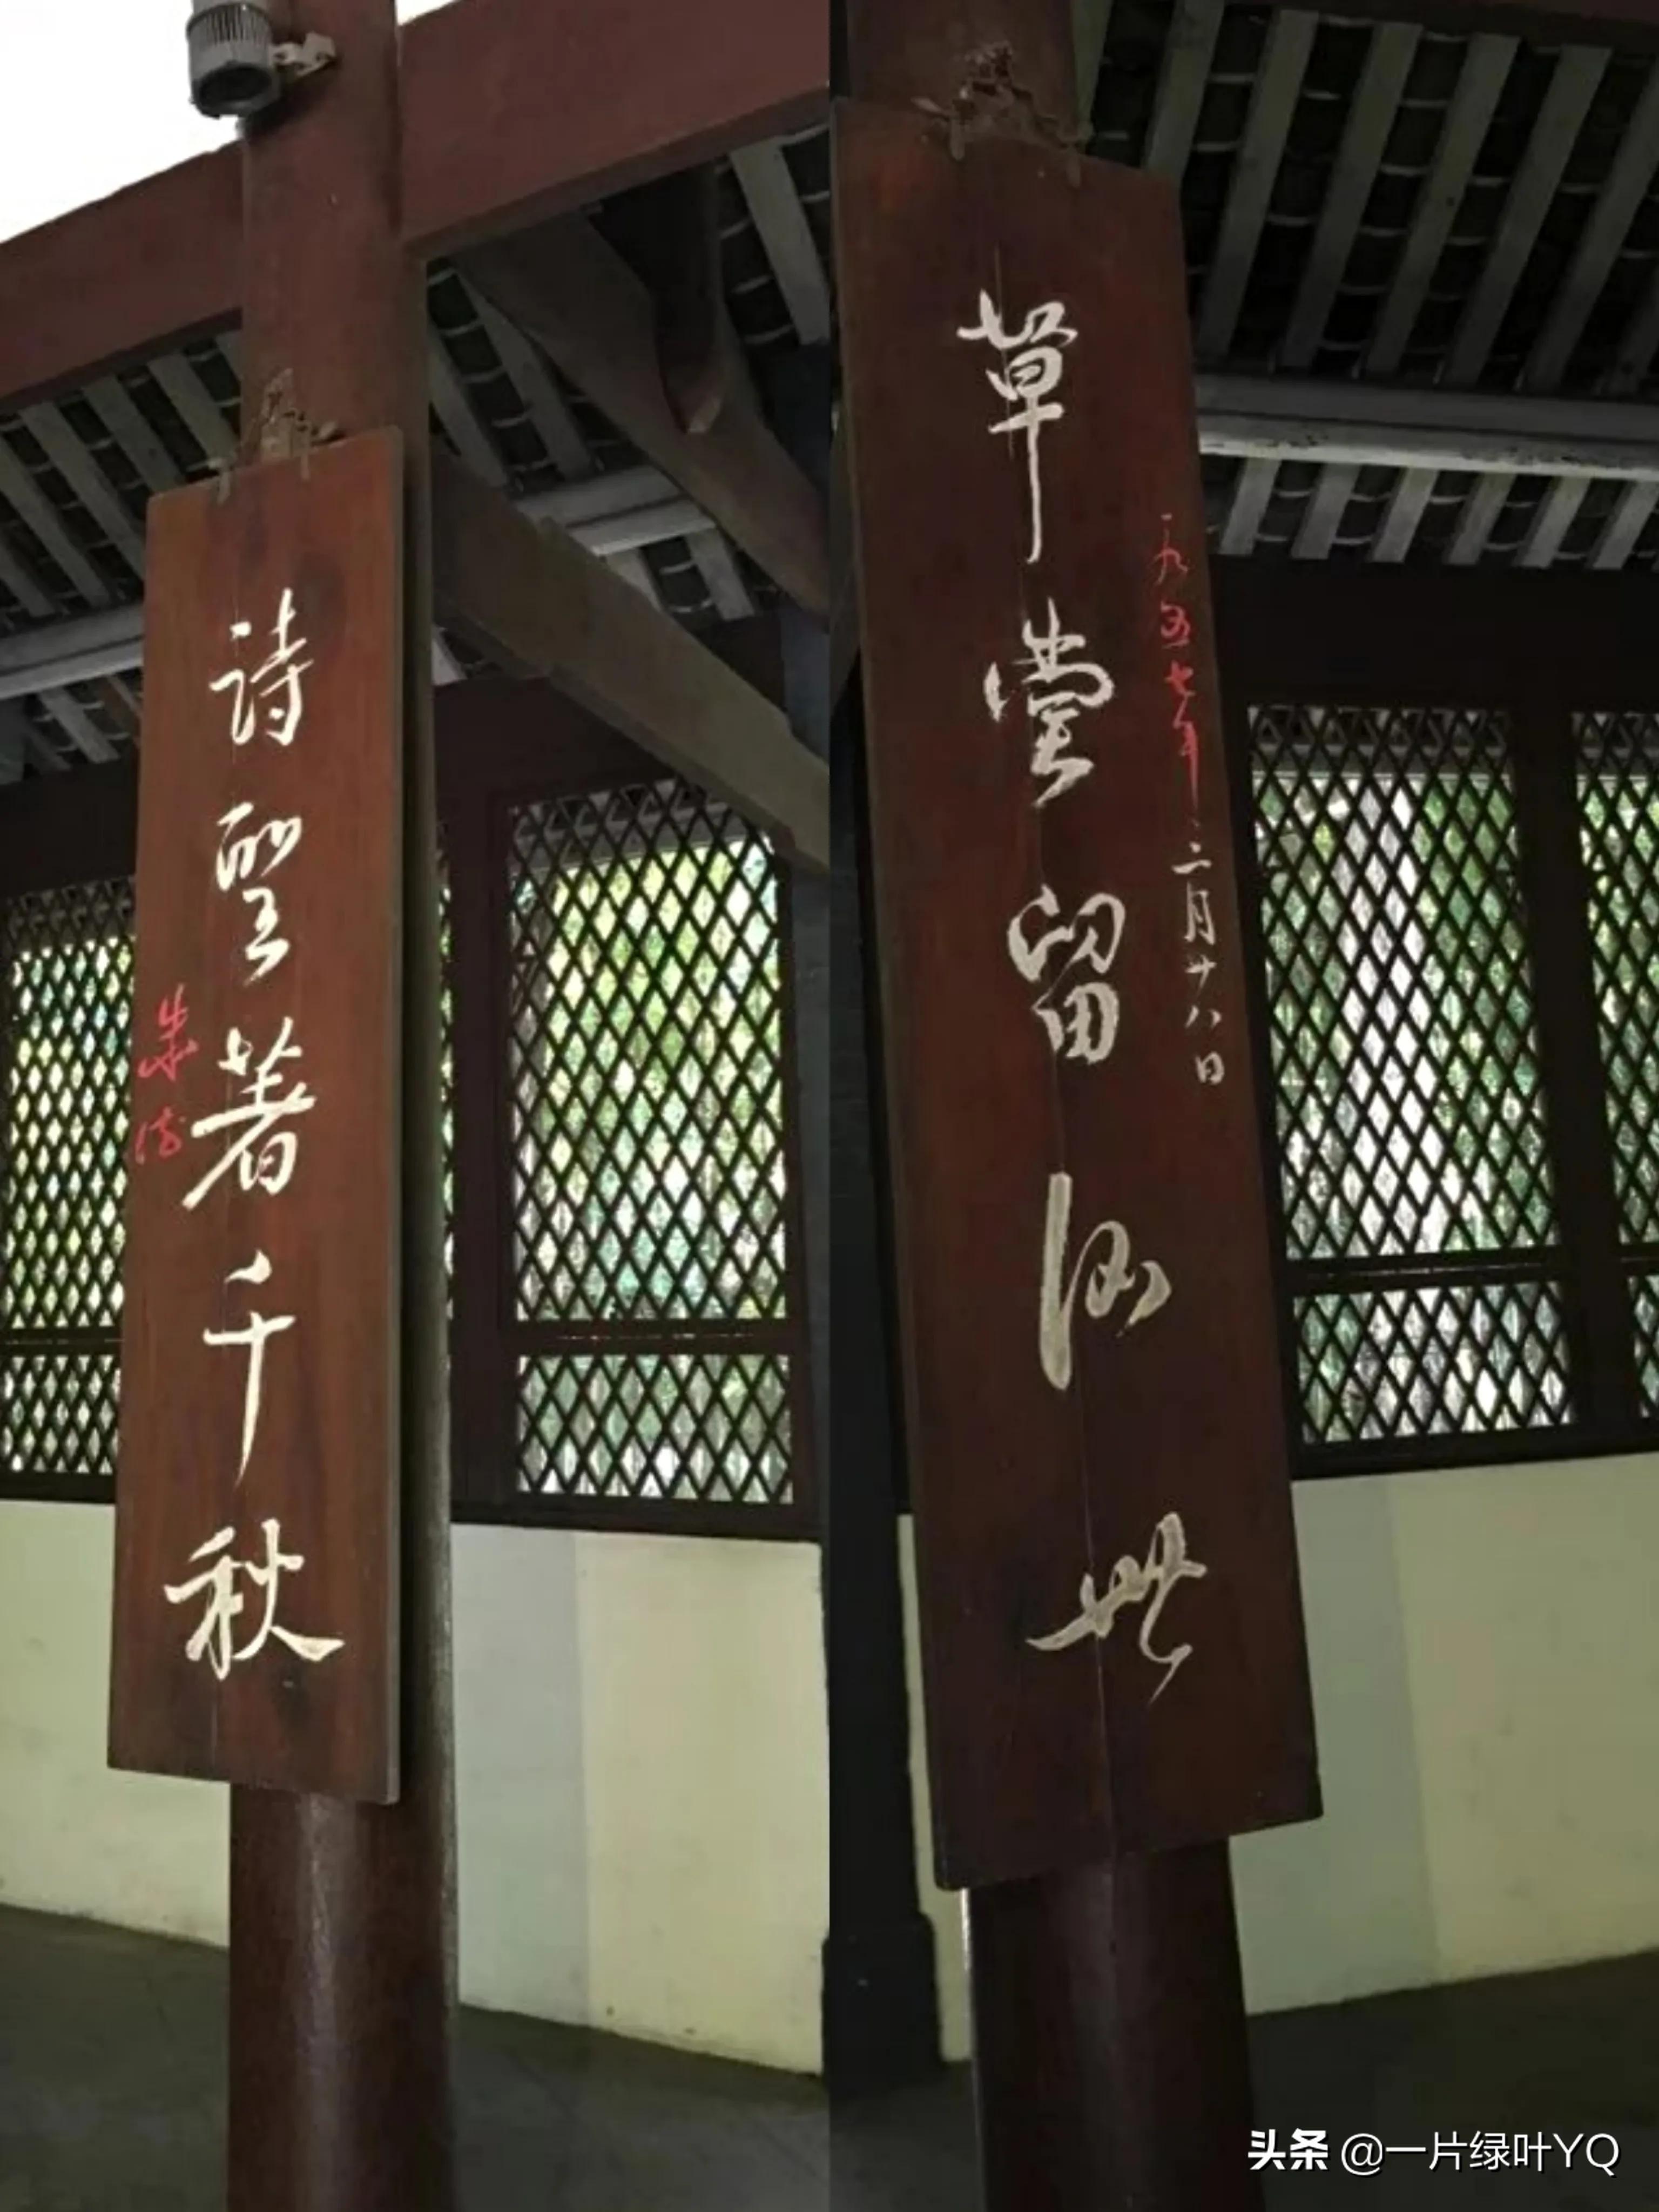 一九五七年二月廿八日
草堂留後世
詩聖著千秋
朱德
头条 @一片绿叶YQ